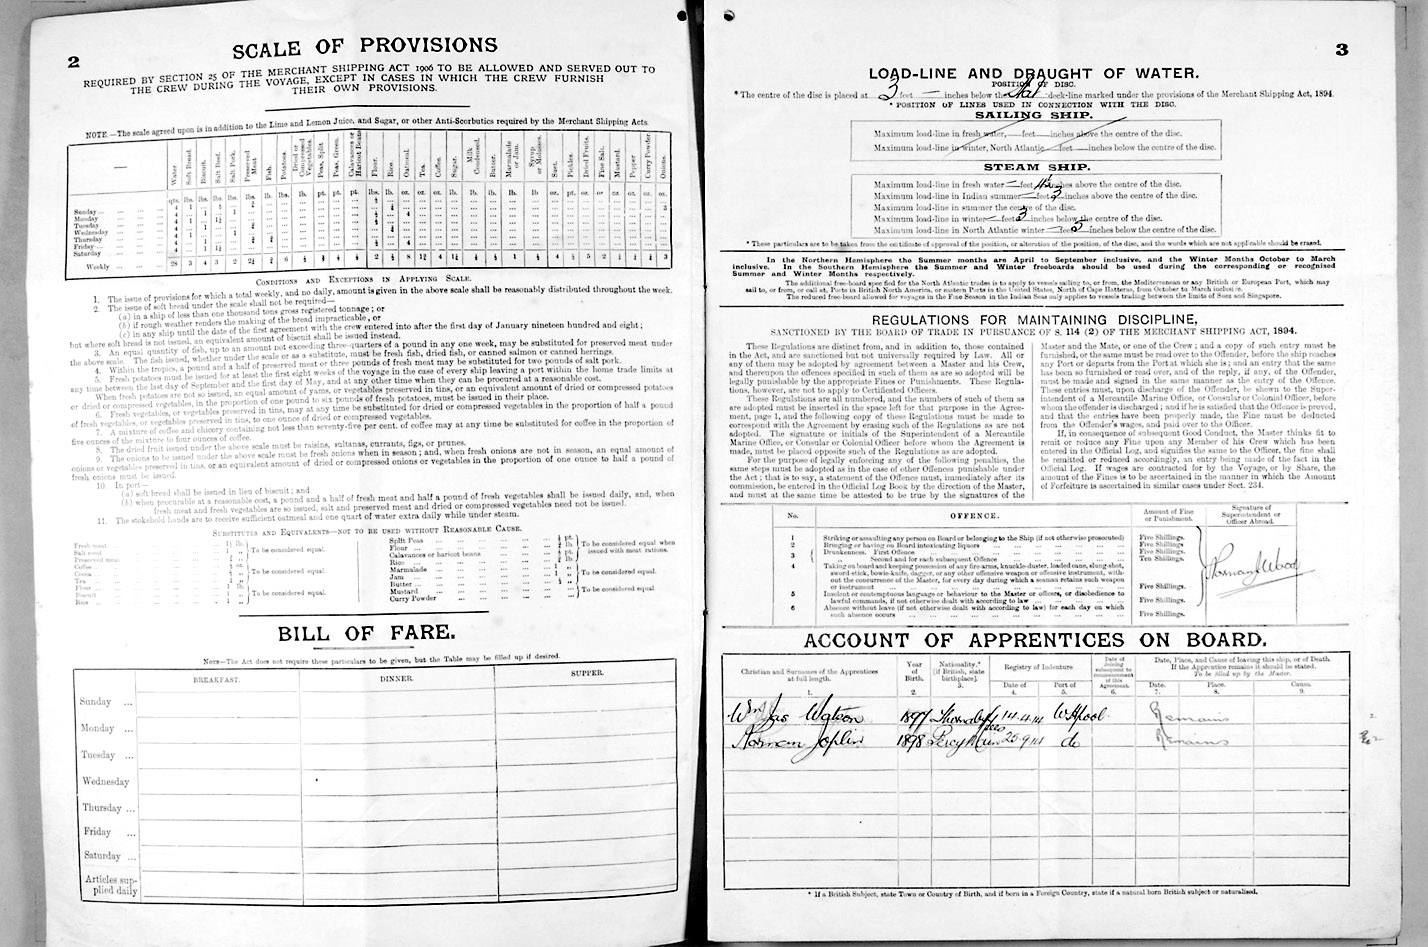 2
SCALE OF PROVISIONS
REQUIRED BY SECTION 25 OF THE MERCHANT SHIPPING ACT 1906 TO BE ALLOWED AND SERVED OUT TO
THE CREW DURING THE VOYAGE, EXCEPT IN CASES IN WHICH THE CREW FURNISH
THEIR OWN PROVISIONS.
NOTE.—The scale agreed upon is in addition to the Lime and Lemon Juice, and Sugar, or other Anti-Scorbutics required by the Merchant Shipping Acts.
Water Soft Bread. Biscuit. Salt Beef. Salt Pork. Preserved Meat Fish. Potatoes. Dried or Compressed Vegetables. Peas, Split Peas, Green. Calavances or Haricot Beans Flour. Rice. Oatmeal. Tea. Coffee. Sugar. Milk Condensed. Butter. Marmalade or Jam. Syrup or Molasses. Suet. Pickles. Dried Fruits. Fine Salt. Mustard. Pepper Curry Powder. Onions.
Sunday
Monday
Tuesday
Wednesday
Thursday
Friday
Saturday
Weekly
CONDITIONS AND EXCEPTIONS IN APPLYING SCALE.
1. The issue of provisions for which a total weekly, and no daily, amount is given in the above scale shall be reasonably distributed throughout the week.
2. The issue of soft bread under the scale shall not be required—
(a) in a ship of less than one thousand tons gross registered tonnage; or
(b) if rough weather renders the making of the bread impracticable, or
(c) in any ship until the date of the first agreement with the crew entered into after the first day of January nineteen hundred and eight;
but where soft bread is not issued, an equivalent amount of biscuit shall be issued instead.
3. An equal quantity of fish, up to an amount not exceeding three-quarters of a pound in any one week, may be substituted for preserved meat under
the above scale. The fish issued, whether under the scale or as a substitute, must be fresh fish, dried fish, or canned salmon or canned herrings.
4. Within the tropics, a pound and a half of preserved meat or three pounds of fresh meat may be substituted for two pounds of salt pork.
5. Fresh potatoes must be issued for at least the first eight weeks of the voyage in the case of every ship leaving a port within the home trade limits at
any time between the last day of September and the first day of May, and at any other time when they can be procured at a reasonable cost.
When fresh potatoes are not so issued, an equal amount of yams, or vegetables preserved in tins, or an equivalent amount of dried or compressed potatoes
or dried or compressed vegetables, in the proportion of one pound to six pounds of fresh potatoes, must be issued in their place.
6. Fresh vegetables, or vegetables preserved in tins, may at any time be substituted for dried or compressed vegetables in the proportion of half a pound
of fresh vegetables, or vegetables preserved in tins, to one ounce of dried or compressed vegetables.
7. A mixture of coffee and chicory containing not less than seventy-five per cent. of coffee may at any time be substituted for coffee in the proportion of
five ounces of the mixture to four ounces of coffee.
8. The dried fruit issued under the above scale must be raisins, sultanas, currants, figs, or prunes.
9. The onions to be issued under the above scale must be fresh onions when in season; and, when fresh onions are not in season, an equal amount of
onions or vegetables preserved in tins, or an equivalent amount of dried or compressed onions or vegetables in the proportion of one ounce to half a pound of
fresh onions must be issued.
10. In port—
(a) soft bread shall be issued in lieu of biscuit; and
(b) when procurable at a reasonable cost, a pound and a half of fresh meat and half a pound of fresh vegetables shall be issued daily, and, when
fresh meat and fresh vegetables are so issued, salt and preserved meat and dried or compressed vegetables need not be issued.
11. The stokehold hands are to receive sufficient oatmeal and one quart of water extra daily while under steam.
SUBSTITUTES AND EQUIVALENTS—NOT TO BE USED WITHOUT REASONABLE CAUSE.
Fresh meat
Salt meat
Preserved meat
To be considered equal.
Coffee
Cocoa
Tea
To be considered equal.
Flour
Biscuit
Rice
To be considered equal.
Split Peas
Flour
Calavances or haricot beans
Rice
To be considered equal when issued with meat rations.
Marmalade
Jam
Butter
To be considered equal.
Mustard
Curry Powder
To be considered equal.
BILL OF FARE.
NOTE—The Act does not require these particulars to be given, but the Table may be filled up if desired.
BREAKFAST. DINNER. SUPPER.
Sunday ...
Monday ...
Tuesday ...
Wednesday
Thursday ...
Friday ...
Saturday ...
Articles sup-
plied daily
3
LOAD-LINE AND DRAUGHT OF WATER.
POSITION OF DISC.
*The centre of the disc is placed at 3 feet — inches below the deck-line marked under the provisions of the Merchant Shipping Act, 1894.
* POSITION OF LINES USED IN CONNECTION WITH THE DISC.
SAILING SHIP.
Maximum load-line in fresh water, — feet — inches above the centre of the disc.
Maximum load-line in winter, North Atlantic — feet — inches above the centre of the disc.
STEAM SHIP.
Maximum load-line in fresh water — feet inches above the centre of the disc.
Maximum load-line in Indian summer — feet 3 inches above the centre of the disc.
Maximum load-line in summer the centre of the disc.
Maximum load-line in winter — feet 3 inches below the centre of the disc.
Maximum load-line in North Atlantic winter — feet 3 inches below the centre of the disc.
* These particulars are to be taken from the certificate of approval of the position, or alteration of the position, of the disc, and the words which are not applicable should be erased.
In the Northern Hemisphere the Summer months are April to September inclusive, and the Winter Months October to March
inclusive. In the Southern Hemisphere the Summer and Winter freeboards should be used during the corresponding or recognised
Summer and Winter Months respectively.
The additional free-board specified for the North Atlantic trades is to apply to vessels sailing to, or from, the Mediterranean or any British or European Port, which may
sail to, or from, or call at, Ports in British North America, or eastern Ports in the United States, North of Cape Hatteras, from October to March inclusive.
The reduced free-board allowed for voyages in the Fine Season in the Indian Seas only applies to vessels trading between the limits of Suez and Singapore.
REGULATIONS FOR MAINTAINING DISCIPLINE,
SANCTIONED BY THE BOARD OF TRADE IN PURSUANCE OF S. 114 (2) OF THE MERCHANT SHIPPING ACT, 1894.
These Regulations are distinct from, and in addition to, those contained
in the Act, and are sanctioned but not universally required by Law. All or
any of them may be adopted by agreement between a Master and his Crew,
and thereupon the offences specified in such of them as are so adopted will be
legally punishable by the appropriate Fines or Punishments. These Regula-
tions, however, are not to apply to Certificated Officers.
These Regulations are all numbered, and the numbers of such of them as
are adopted must be inserted in the space left for that purpose in the Agree-
ment, page 1, and the following copy of these Regulations must be made to
correspond with the Agreement by erasing such of the Regulations as are not
adopted. The signature or initials of the Superintendent of a Mercantile
Marine Office, or Consular or Colonial Officer before whom the Agreement is
made, must be placed opposite such of the Regulations as are adopted.
For the purpose of legally enforcing any of the following penalties, the
same steps must be adopted as in the case of other Offences punishable under
the Act; that is to say, a statement of the Offence must, immediately after its
commission, be entered in the Official Log Book by the direction of the Master,
and must at the same time be attested to be true by the signatures of the
Master and the Mate, or one of the Crew; and a copy of such entry must be
furnished, or the same must be read over to the Offender, before the ship reaches
any Port or departs from the Port at which she is; and an entry that the same
has been so furnished or read over, and of the reply, if any, of the Offender,
must be made and signed in the same manner as the entry of the Offence.
These entries must, upon discharge of the Offender, be shown to the Super-
intendent of a Mercantile Marine Office, or Consular or Colonial Officer, before
whom the offender is discharged; and if he is satisfied that the Offence is proved,
and that the entries have been properly made, the Fine must be deducted
from the Offender's wages, and paid over to the Officer.
If, in consequence of subsequent Good Conduct, the Master thinks fit to
remit or reduce any Fine upon any Member of his Crew which has been
entered in the Official Log, and signifies the same to the Officer, the fine shall
be remitted or reduced accordingly, an entry being made of the fact in the
Official Log. If wages are contracted for by the Voyage, or by Share, the
amount of the Fines is to be ascertained in the manner in which the Amount
of Forfeiture is ascertained in similar cases under Sect. 234.
No. OFFENCE. Amount of Fine or Punishment. Signature of Superintendent or Officer Abroad.
1 Striking or assaulting any person on Board or belonging to the Ship (if not otherwise prosecuted) Five Shillings.
2 Bringing or having on Board intoxicating liquors Five Shillings.
3 Drunkenness. First Offence Five Shillings.
" Second and for each subsequent Offence Ten Shillings.
4 Taking on board and keeping possession of any fire-arms, knuckle-duster, loaded cane, slung-shot,
sword-stick, bowie-knife, dagger, or any other offensive weapon or offensive instrument, with-
out the concurrence of the Master, for every day during which a seaman retains such weapon
or instrument Five Shillings.
5 Insolent or contemptuous language or behaviour to the Master or officers, or disobedience to
lawful commands, if not otherwise dealt with according to law Five Shillings.
6 Absence without leave (if not otherwise dealt with according to law) for each day on which
such absence occurs Five Shillings.
Norman J Wood
ACCOUNT OF APPRENTICES ON BOARD.
Christian and Surnames of the Apprentices at full length. Year of Birth. Nationality.* [If British, state birthplace]. Registry of Indenture Date of Joining subsequent to commencement of this Agreement. Date, Place, and Cause of leaving this ship, or of Death. If the Apprentice remains it should be stated. To be filled up by the Master.
Date of Port of Date. Place. Cause.
1. 2. 3. 4. 5. 6. 7. 8. 9.
Wm Jas Watson 1897 14.4.14 W Hpool Remains
Norman Joplin 1898 Percy Main 25.9.14 do Remains
* If a British Subject, state Town or Country of Birth, and if born in a Foreign Country, state if a natural born British subject or naturalised.